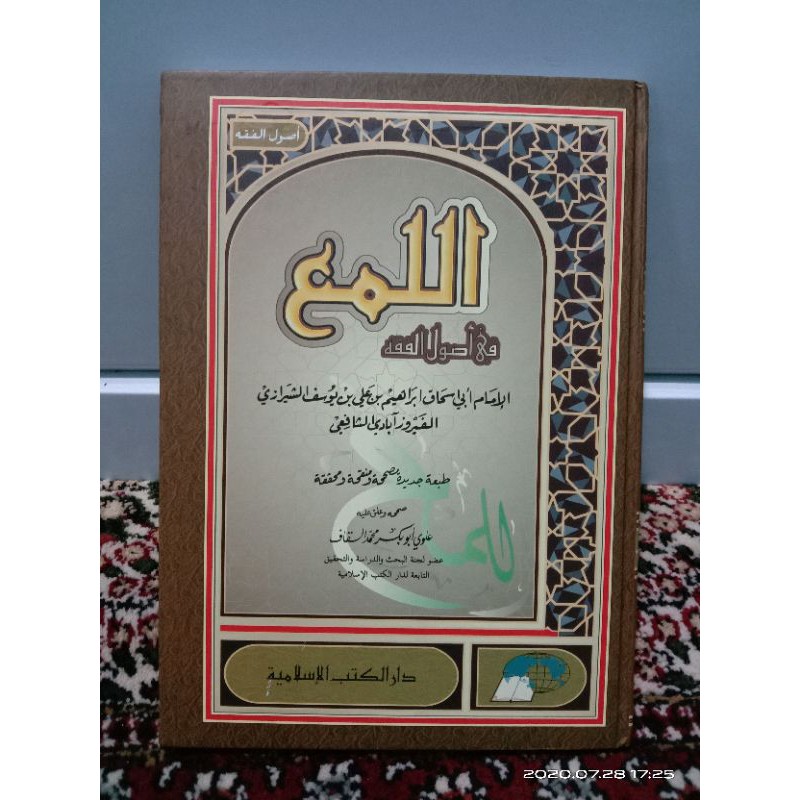 أصول الفقه
اللمع
في أصول الفقه
الإمام أبي اسحاق ابراهيم بن علي بن يوسف الشيرازي
الفيروز آبادي الشافعي
طبعة جديدة مصححة ومنقحة ومحققة
صححه وعلق عليه
علوي أبو بكر محمد السقاف
عضو لجنة البحث والدراسة والتحقيق
التابعة لدار الكتب الإسلامية
دار الكتب الإسلامية
2020.07.28 17:25